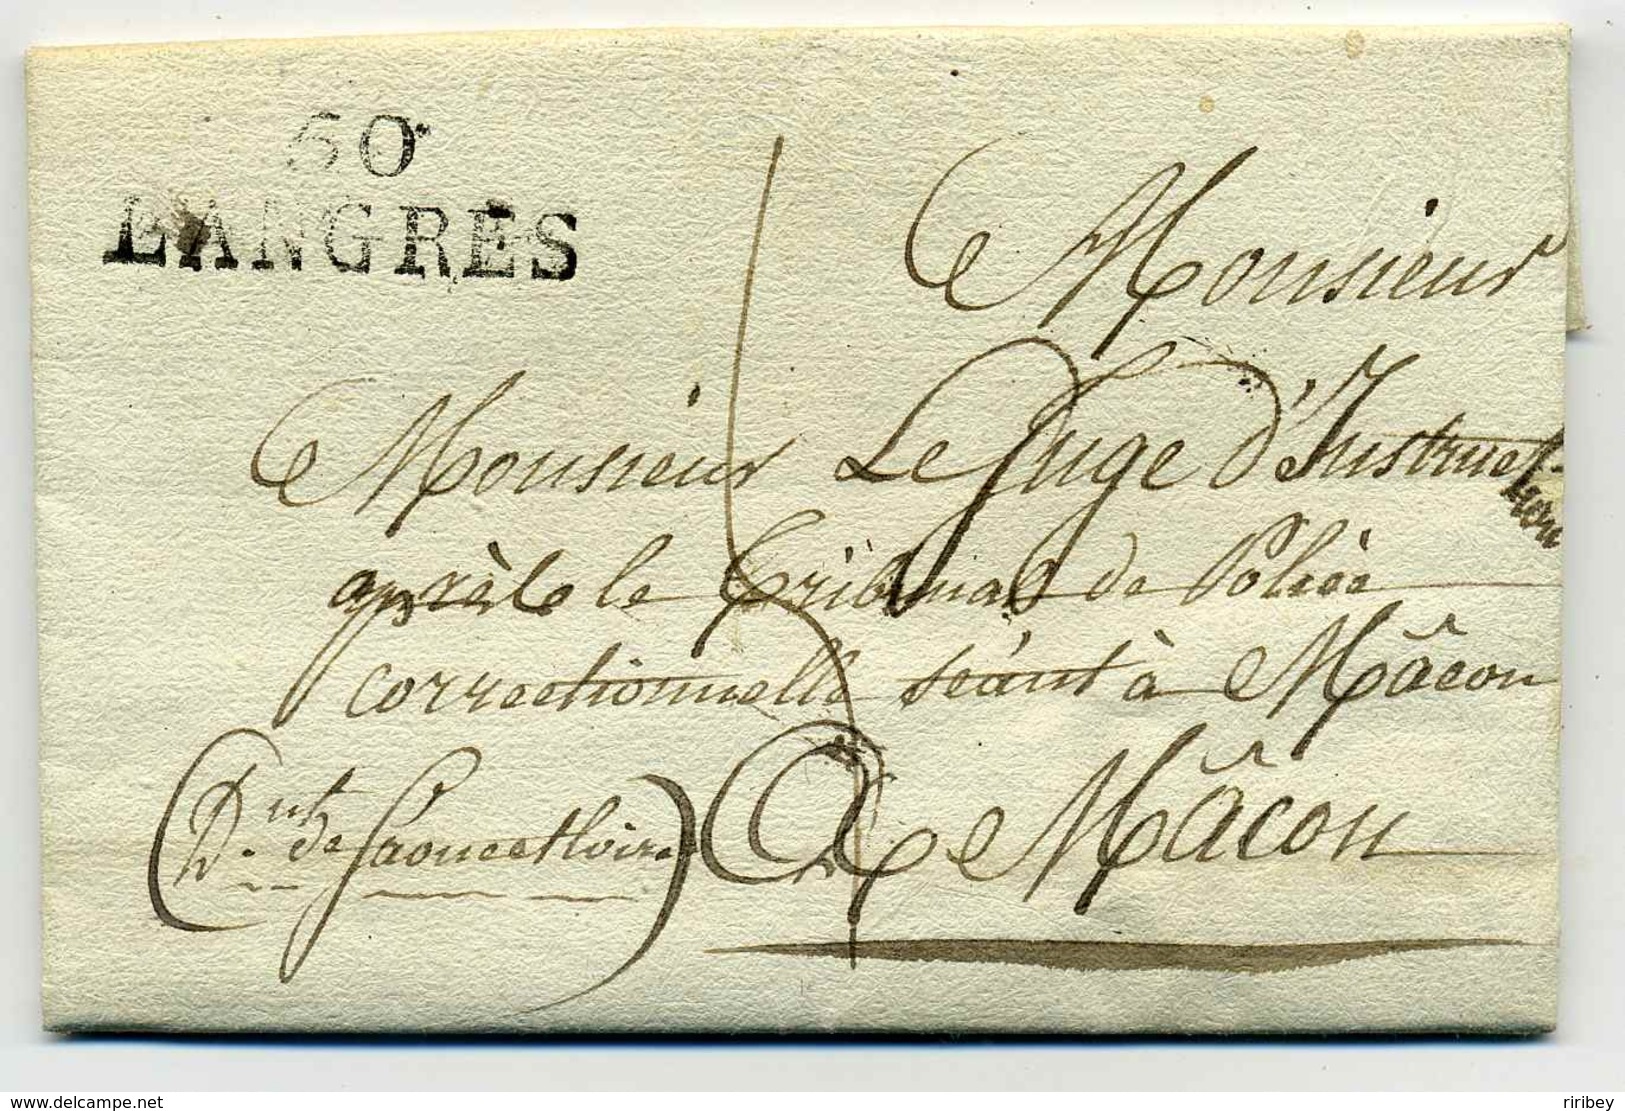 50
LANGRES
Monsieur
Monsieur Le Juge d'Instruction
près le Tribunal de Police
correctionnelle séant à Mâcon
(Dmt de Saone et Loire) A Mâcon
delcampe.net
riribey